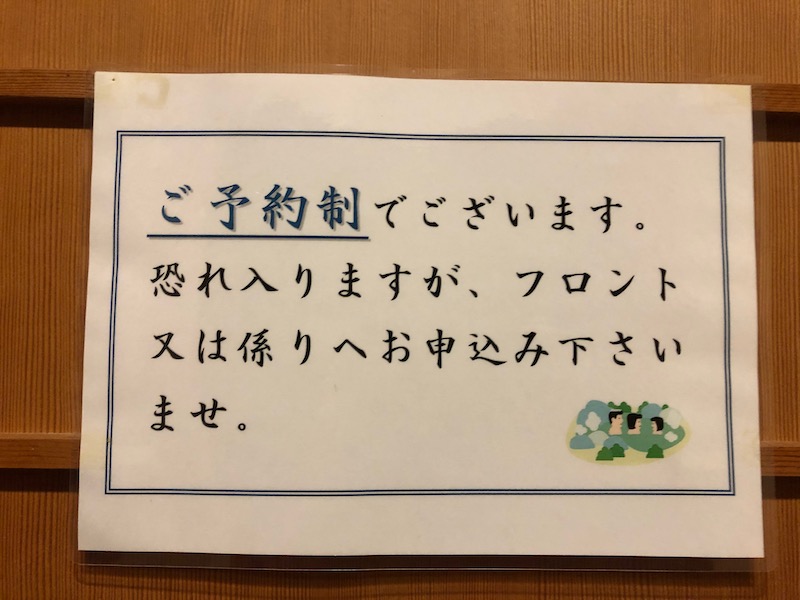 ご予約制でございます。
恐れ入りますが、フロント
又は係りへお申込み下さい
ませ。